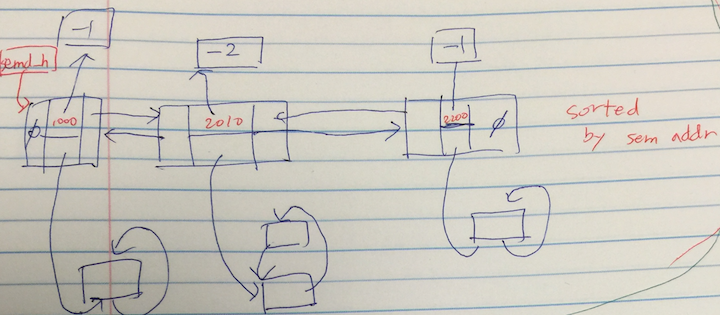 -1
-2
-1
semd_h
φ
1000
2010
2200
φ
sorted
by sem addr